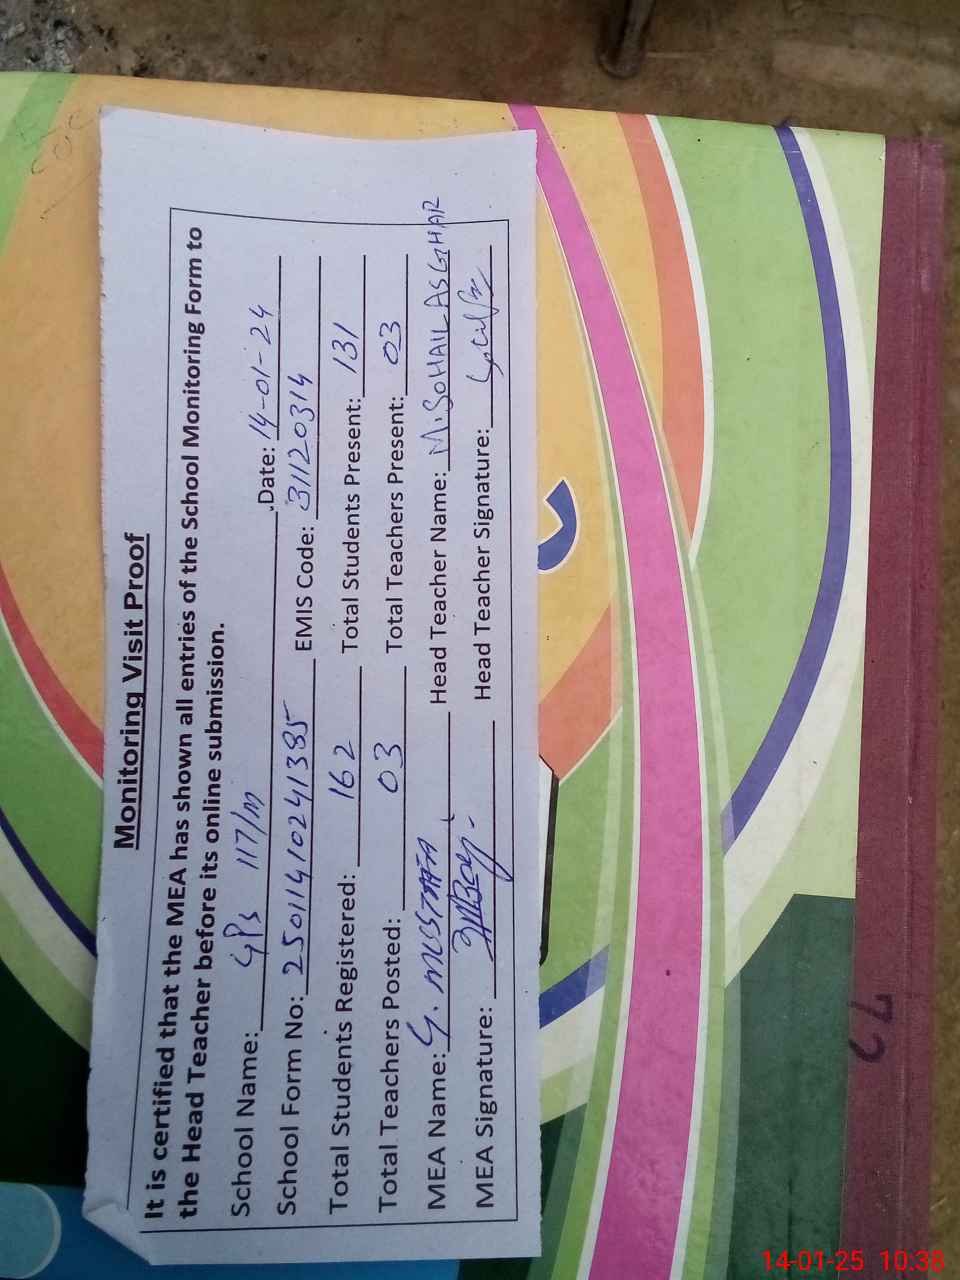 Monitoring Visit Proof
It is certified that the MEA has shown all entries of the School Monitoring Form to
the Head Teacher before its online submission.
School Name: GPS 117/M Date: 14-01-24
School Form No: 25011410241385 EMIS Code: 31120314
Total Students Registered: 162 Total Students Present: 131
Total Teachers Posted: 03 Total Teachers Present: 03
MEA Name: G. MUSTAFA Head Teacher Name: M. SOHAIL ASGHAR
MEA Signature: Head Teacher Signature:
14-01-25 10:38